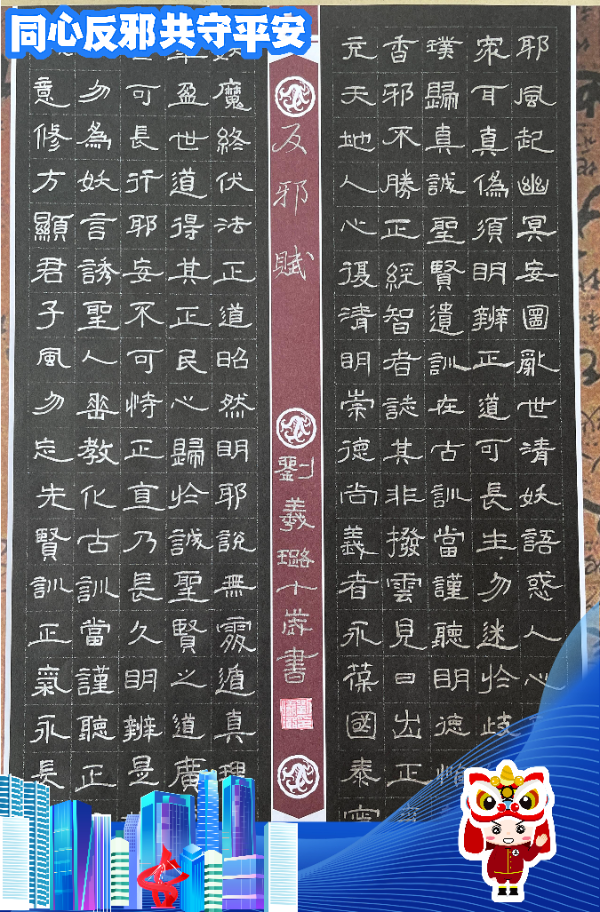 同心反邪 共守平安
耶風起幽冥妄圖亂世清妖語惑人心
眾耳真偽須明辨正道可長生勿迷於歧
璞歸真誠聖賢遺訓在古訓當謹聽明德惟
香邪不勝正經智者誌其非撥雲見日出正
充天地人心復清明崇德尚義者永葆國泰
反邪賦
劉羲璐十歲書
妖魔終伏法正道昭然明耶說無處遁真理
盈世道得其正民心歸於誠聖賢之道廣
可長行耶妄不可恃正直乃長久明辨是
勿為妖言誘聖人垂教化古訓當謹聽正
意修方顯君子風勿忘先賢訓正氣永長